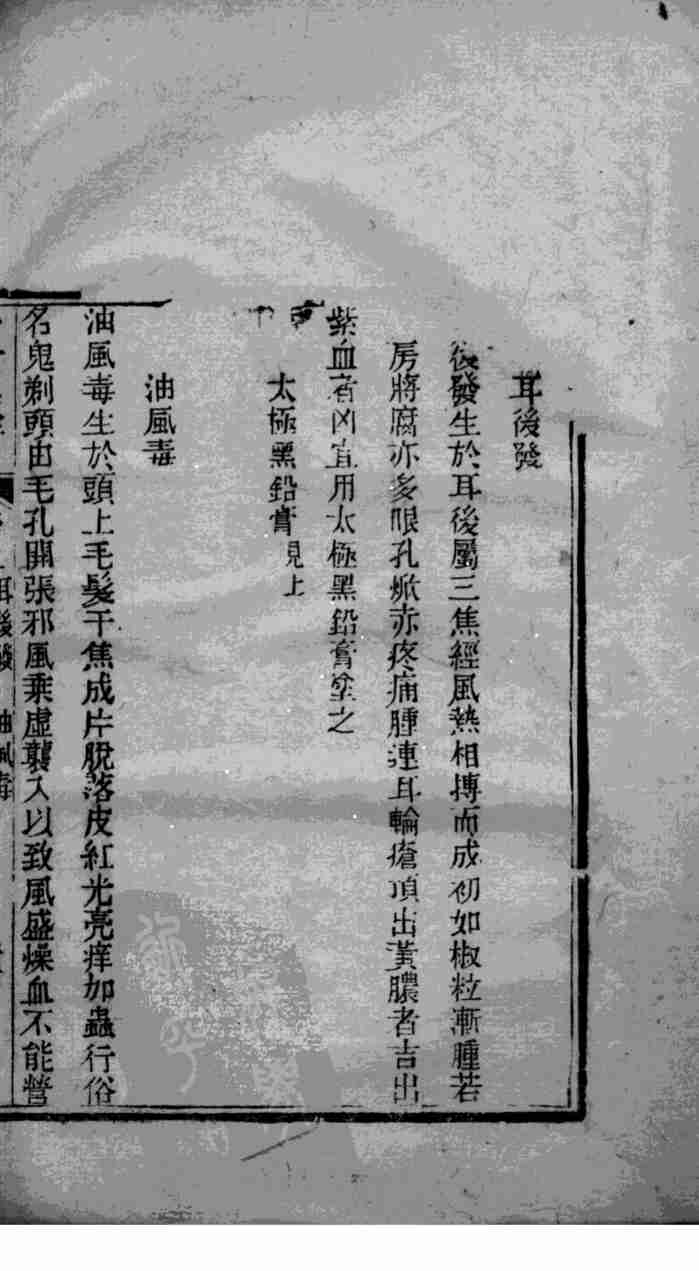 耳後發
後發生於耳後屬三焦經風熱相摶而成初如椒粒漸腫若
房將腐亦多眼孔焮赤疼痛腫連耳輪瘡頂出黃膿者吉出
紫血者凶宜用太極黑鉛膏塗之
太極黑鉛膏見上
油風毒
油風毒生於頭上毛髮干焦成片脫落皮紅光亮痒如蟲行俗
名鬼剃頭由毛孔開張邪風乘虛襲入以致風盛燥血不能營
耳後發 油風毒